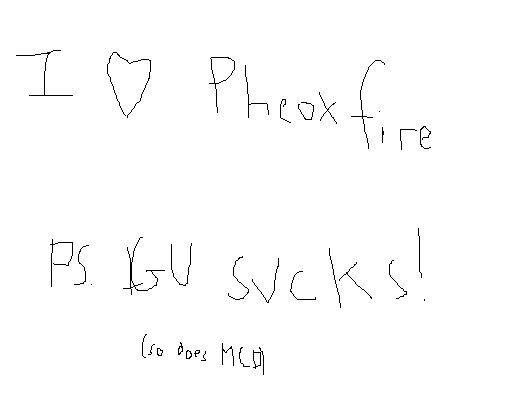 I ♡ Pheoxfire
PS. GU sucks!
(so does MCD)